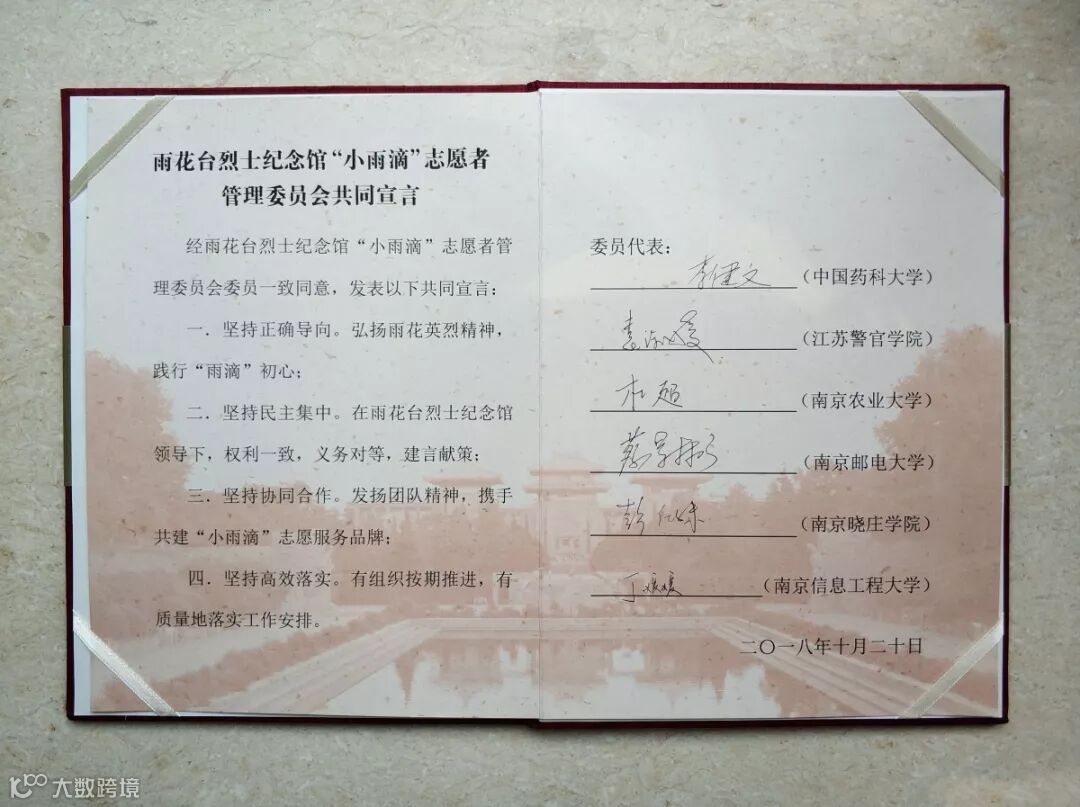 雨花台烈士纪念馆“小雨滴”志愿者
管理委员会共同宣言
经雨花台烈士纪念馆“小雨滴”志愿者管
理委员会委员一致同意，发表以下共同宣言：
一．坚持正确导向。弘扬雨花英烈精神，
践行“雨滴”初心；
二．坚持民主集中。在雨花台烈士纪念馆
领导下，权利一致，义务对等，建言献策；
三．坚持协同合作。发扬团队精神，携手
共建“小雨滴”志愿服务品牌；
四．坚持高效落实。有组织按期推进，有
质量地落实工作安排。
委员代表：
李健文（中国药科大学）
（江苏警官学院）
（南京农业大学）
（南京邮电大学）
（南京晓庄学院）
丁媛媛（南京信息工程大学）
二〇一八年十月二十日
大数跨境